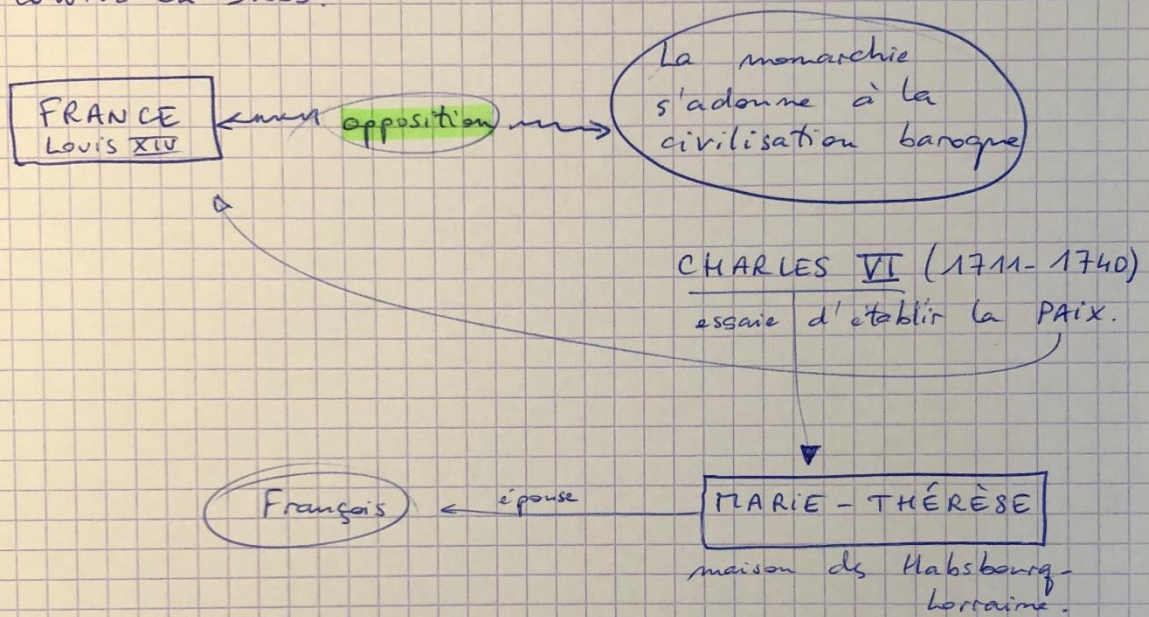 FRANCE
Louis XIV
opposition
La monarchie
s'adonne à la
civilisation baroque
CHARLES VI (1711-1740)
essaie d'établir la PAiX.
François
épouse
MARiE - THÉRÈSE
maison ds Habsbourg-
Lorraine.